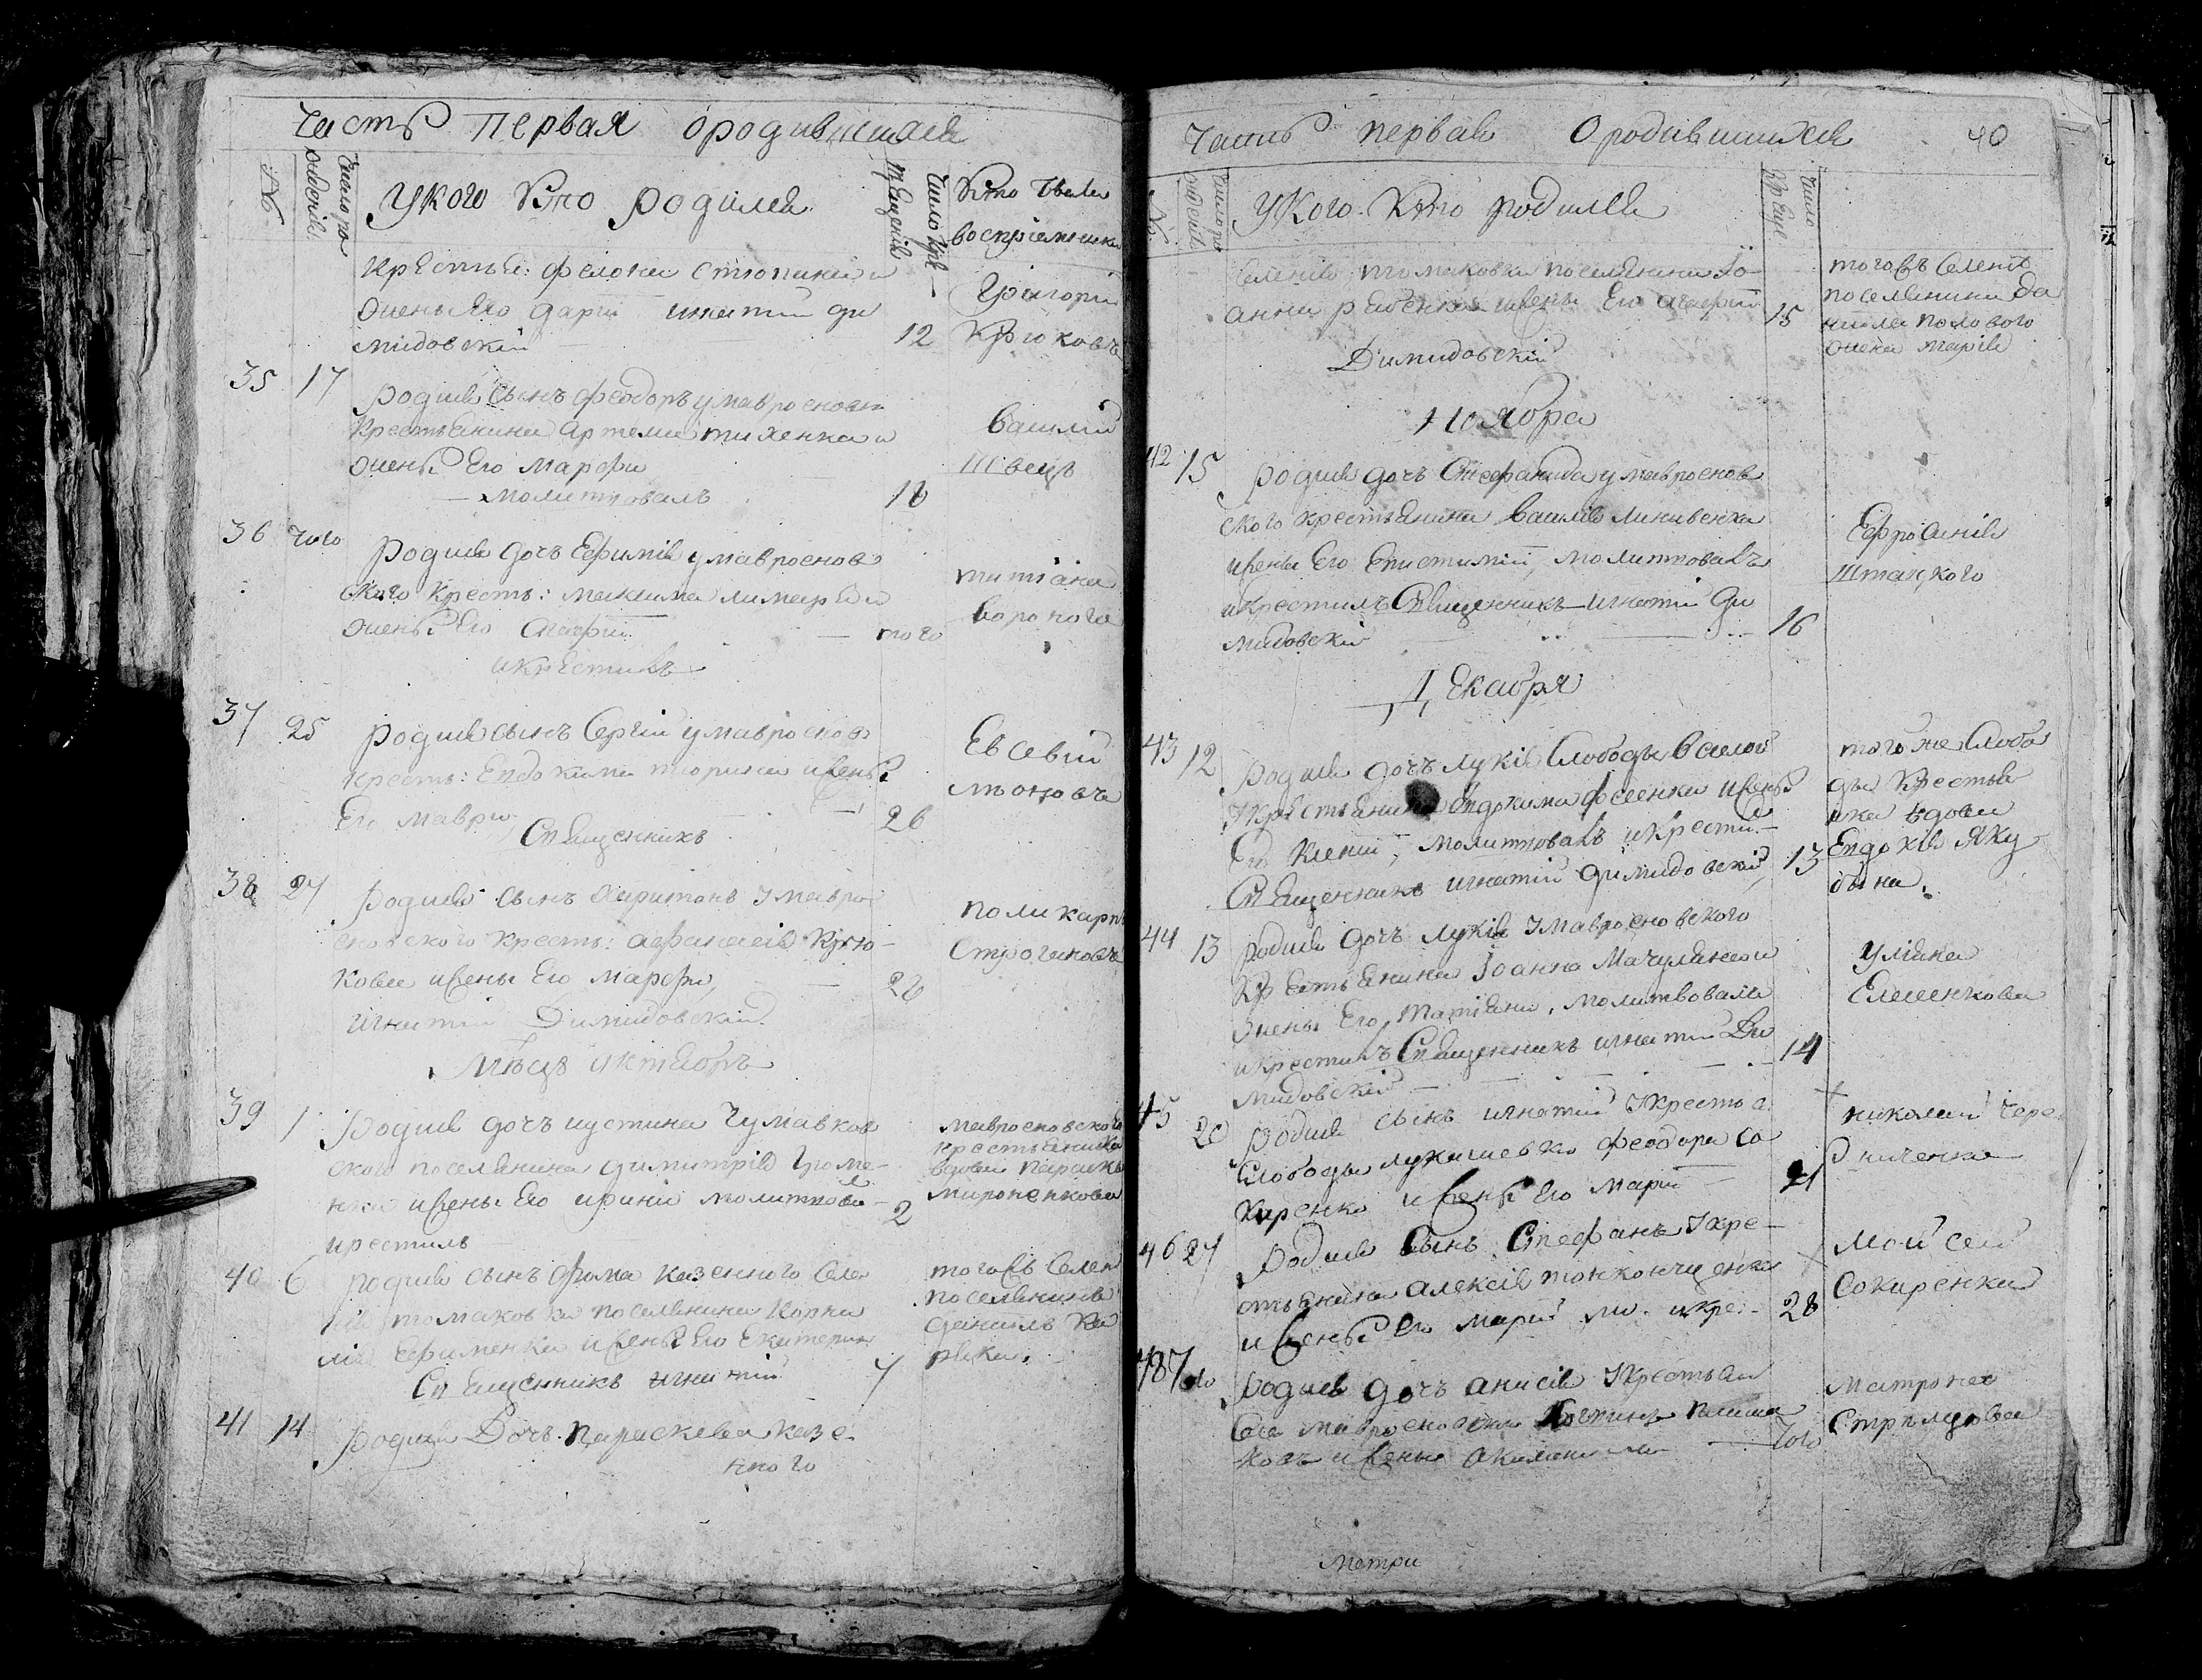 Часть первая ородившихся
№
Число рождения
Укого Кто родился
Число крещения
Кто были
воспрiемники
Крестья:
жены Его Дарiи игнатiй ди
мидовскiй 12
Григорiй
Крюковъ
35 17 Родился сынъ феодоръ умавроеновск
Крестьянина Артема тихенка и
жены Его Марфы
молитвовалъ 18
Василiй
Швецъ
36 того Родилась дочь Ефимiя умавроенов
ского Кресть: максима и
жены Его Агафiи того
икрестилъ
татiана
вороного
37 25 Родился сынъ Сергiй умавроенов
Кресть: Евдокима и жены
Его Мавры 26
Священникъ
Евсевiй
38 27 Родился сынъ Харитонъ Умавро
еновского Кресть: афанасiя Крю-
кова ижены Его марфы, 28
Игнатiй Димидовскiй
поликарпъ
Строгановъ
Мѣсяцъ октябрь
39 1 Родилась дочь иустина
ского поселянина димитрiя Громе-
нка ижены Его ирины молитвова- 2
икрестилъ
мавроеновского
крестьянина
вдова параскев
мироненкова
40 6 Родился сынъ фома казенного Селе
нiя томаковки поселянина Корни
лiя Ефименка ижены Его Екатерины
Священникъ игнатiй 7
тогожъ Селен
поселянинъ
данiилъ
41 14 Родилась Дочь Параскева казе
нного
Часть первая Ородившихся 40
№
Число рождения
Укого Кто родился
Число Креще
Селенiя томаковки поселянина Iо-
анна рябенка ижены Его агафiи 15
Димидовскiй
тогожъ Селенiя
поселянина Да
нiила полового
жена марiя
Ноября
42 15 Родилась дочь Стефанида умавроенов
ского крестьянина Василiя
ижены Его Епистимiи, молитвовалъ
икрестилъ Священникъ игнатiй Ди
мидовскiй 16
Ефросинiя
Штанского
Декабря
43 12 Родилась дочь лукiя Слободы
Крестьянина Евдокима фесенка ижены
Его Ксенiи, молитвовалъ икрести-
Священникъ игнатiй Димидовскiй 13
того же Слобо
ды Крестья
нка вдова
Евдокiя Яку
бына
44 13 Родилась дочь лукiя Умавроеновского
Крестьянина Iоанна Мачулянского
жены Его, Татiяны, молитвовалъ
икрестилъ Священникъ игнатiй Ди 14
мидовскiй
Улiяна
Елисенкова
45 20 Родился сынъ игнатiй Укрестья
Слободы лукашевки феодора Со
киренка ижены Его Марiи 21
николай Чере
дниченко
46 27 Родился Сынъ Стефанъ Укре-
стьянина алексiя тонконоженка
ижены Его марiи мо. икре:- 28
Мойсей
Сокиренка
47 Родилась дочь анисiя Укрестьян
села мавроеновки
ковъ ижены акилины того
Матрона
Метри